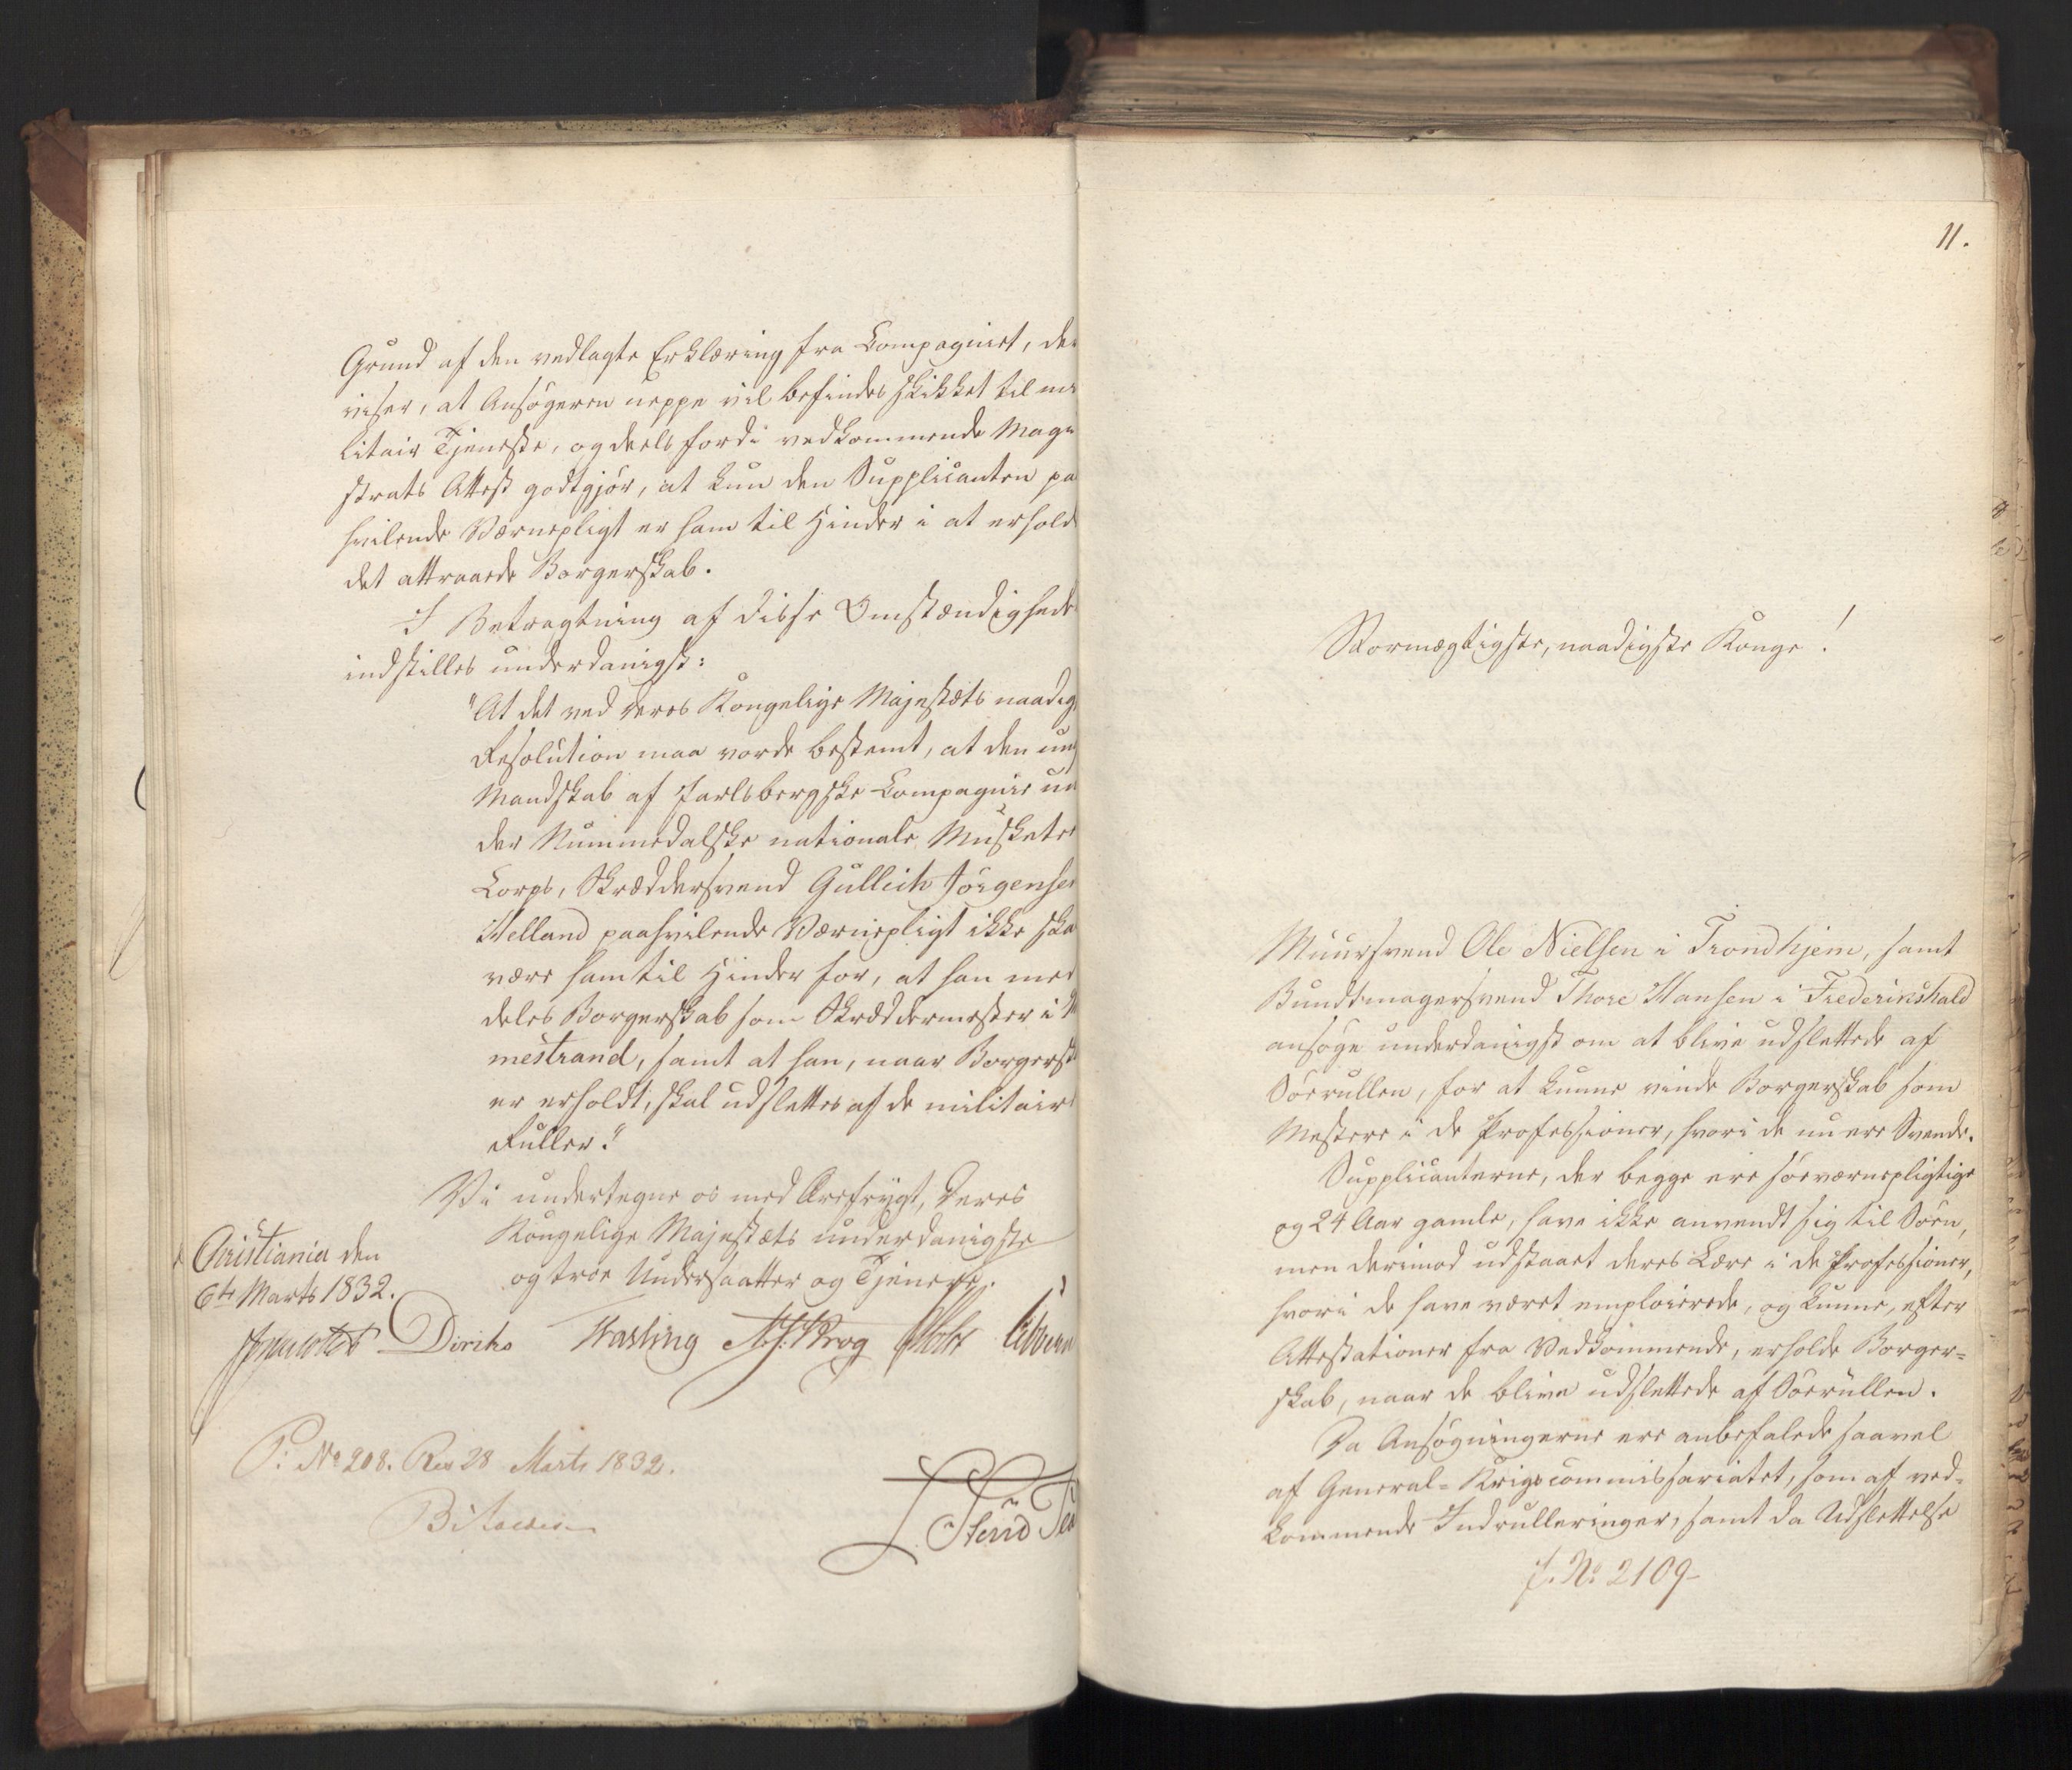 Grund af den vedlagte Erklæring fra Compagniet, der
viser, at Ansøgeren neppe vil befindes skikket til mi
litair Tjeneste, og deels fordi vedkommende Magi
strats Attest godtgjør, at kun den Supplicanten paa
hvilende Værnepligt er ham til Hinder i at erholde
det attraaede Borgerskab.
I Betragtning af disse Omstændigheder
indstilles underdanigst:
"At det ved Deres Kongelige Majestæts naadigste
Resolution maa vorde bestemt, at den ung
Mandskab af Jarlsbergske Compagnie un
der Nummedalske nationale Musketeer
Corps, Skræddersvend Gullich Jørgensen
Helland paahvilende Værnepligt ikke skal
være ham til Hinder for, at han med
deles Borgerskab som Skræddermester i
mestrand, samt at han, naar Borgersk
er erholdt, skal udslettes af de militaire
Ruller."
Vi undertegne os med Ærefrygt, Deres
Kongelige Majestæts underdanigste
og troe Undersaatter og Tjenere.
Christiania den
6te Marts 1832.
Diriks Fasting Krog
P: No 208. Res 28 Marts 1832.
11.
Stormægtigste, naadigste Konge!
Muursvend Ole Nielsen i Trondhjem, samt
Bundtmagersvend Thore Hansen i Frederikshald
ansøge underdanigst om at blive udslettede af
Søerullen, for at kunne vinde Borgerskab som
Mestere i de Professioner, hvori de nu ere Svende.
Supplicanterne, der begge ere søeværnepligtige
og 24 Aar gamle, have ikke anvendt sig til Søen,
men derimod udstaaet deres Lære i de Professioner,
hvori de have været emploierede, og kunne, efter
Attestationer fra Vedkommende, erholde Borger-
skab, naar de blive udslettede af Søerullen.
Da Ansøgningerne ere anbefalede saavel
af General-Krigscommissariatet, som af ved-
kommende Indrulleringer, samt da Udslettelse
J. No 2109